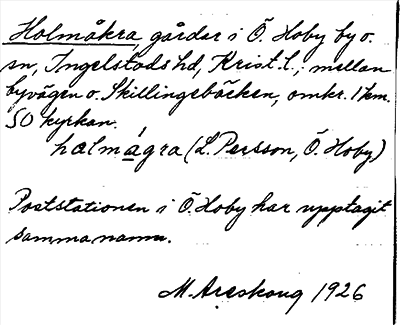 Holmåkra, gårdar i Ö. Hoby by o.
sn, Ingelstads hd, Krist. l.; mellan
byvägen o. Skillingebäcken, omkr. 1 km.
SO kyrkan.
hɑlmágra (L. Persson, Ö. Hoby)
Poststationen i Ö. Hoby har upptagit
samma namn.
M. Areskoug 1926